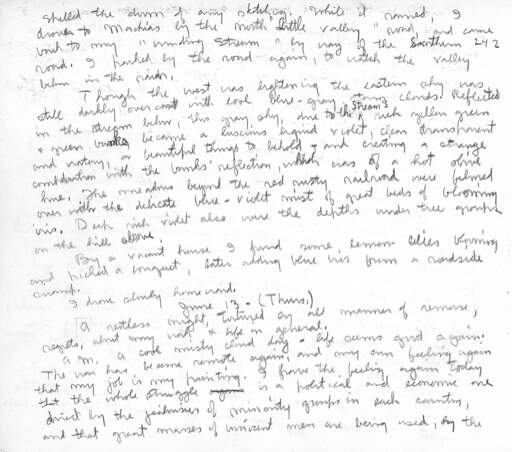 spelled the doom of any sketching. While it rained, I
drove to Machias by the north "little valley" road, and came
back to my "winding stream" by way of the Southern 242
road. I parked by the road again, to watch the valley
below in the rain.
Though the west was lightening the eastern sky was
still darkly overcast with cool blue-gray clouds. Reflected
in the stream below, this gray sky, due to the stream's rich yellow green
+ green became a luscious liquid violet, clear transparent
and watery, a beautiful thing to behold, and creating a strange
combination with the banks' reflection, which was of a hot olive
hue. The meadows beyond the red rusty railroad were filmed
over with the delicate blue-violet mist of great beds of blooming
iris. Deep rich violet also were the depths under tree groups
on the hill above.
By a vacant house I found some lemon-lilies blooming
and picked a bouquet, later adding blue iris from a roadside
swamp.
I drove slowly homeward.
June 13 - (Thurs.)
A restless night, tortured by all manner of remorse,
regrets, about my work & life in general.
A.M. A cool misty cloud day - life seems good again.
The war has become remote again, and my own feeling again
that my job is my painting. I have the feeling again today
that the whole struggle is a political and economic one
driven by the jealousies of minority groups in each country,
and that great masses of innocent men are being used, by the